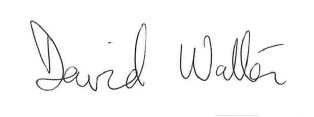 David Wallén